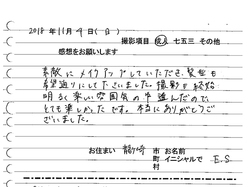 2018 年 11月 9 日（日）
撮影項目 成人 七五三 その他
感想をお願いします
素敵にメイクアップしていただき、髪型も
希望通りにして下さいました。撮影も終始
明るく楽しい雰囲気の中進んだので、
とても楽しめたです。本当にありがとうご
ざいました。
お住まい 龍ヶ崎 市 お名前
町 イニシャルで E.S
村